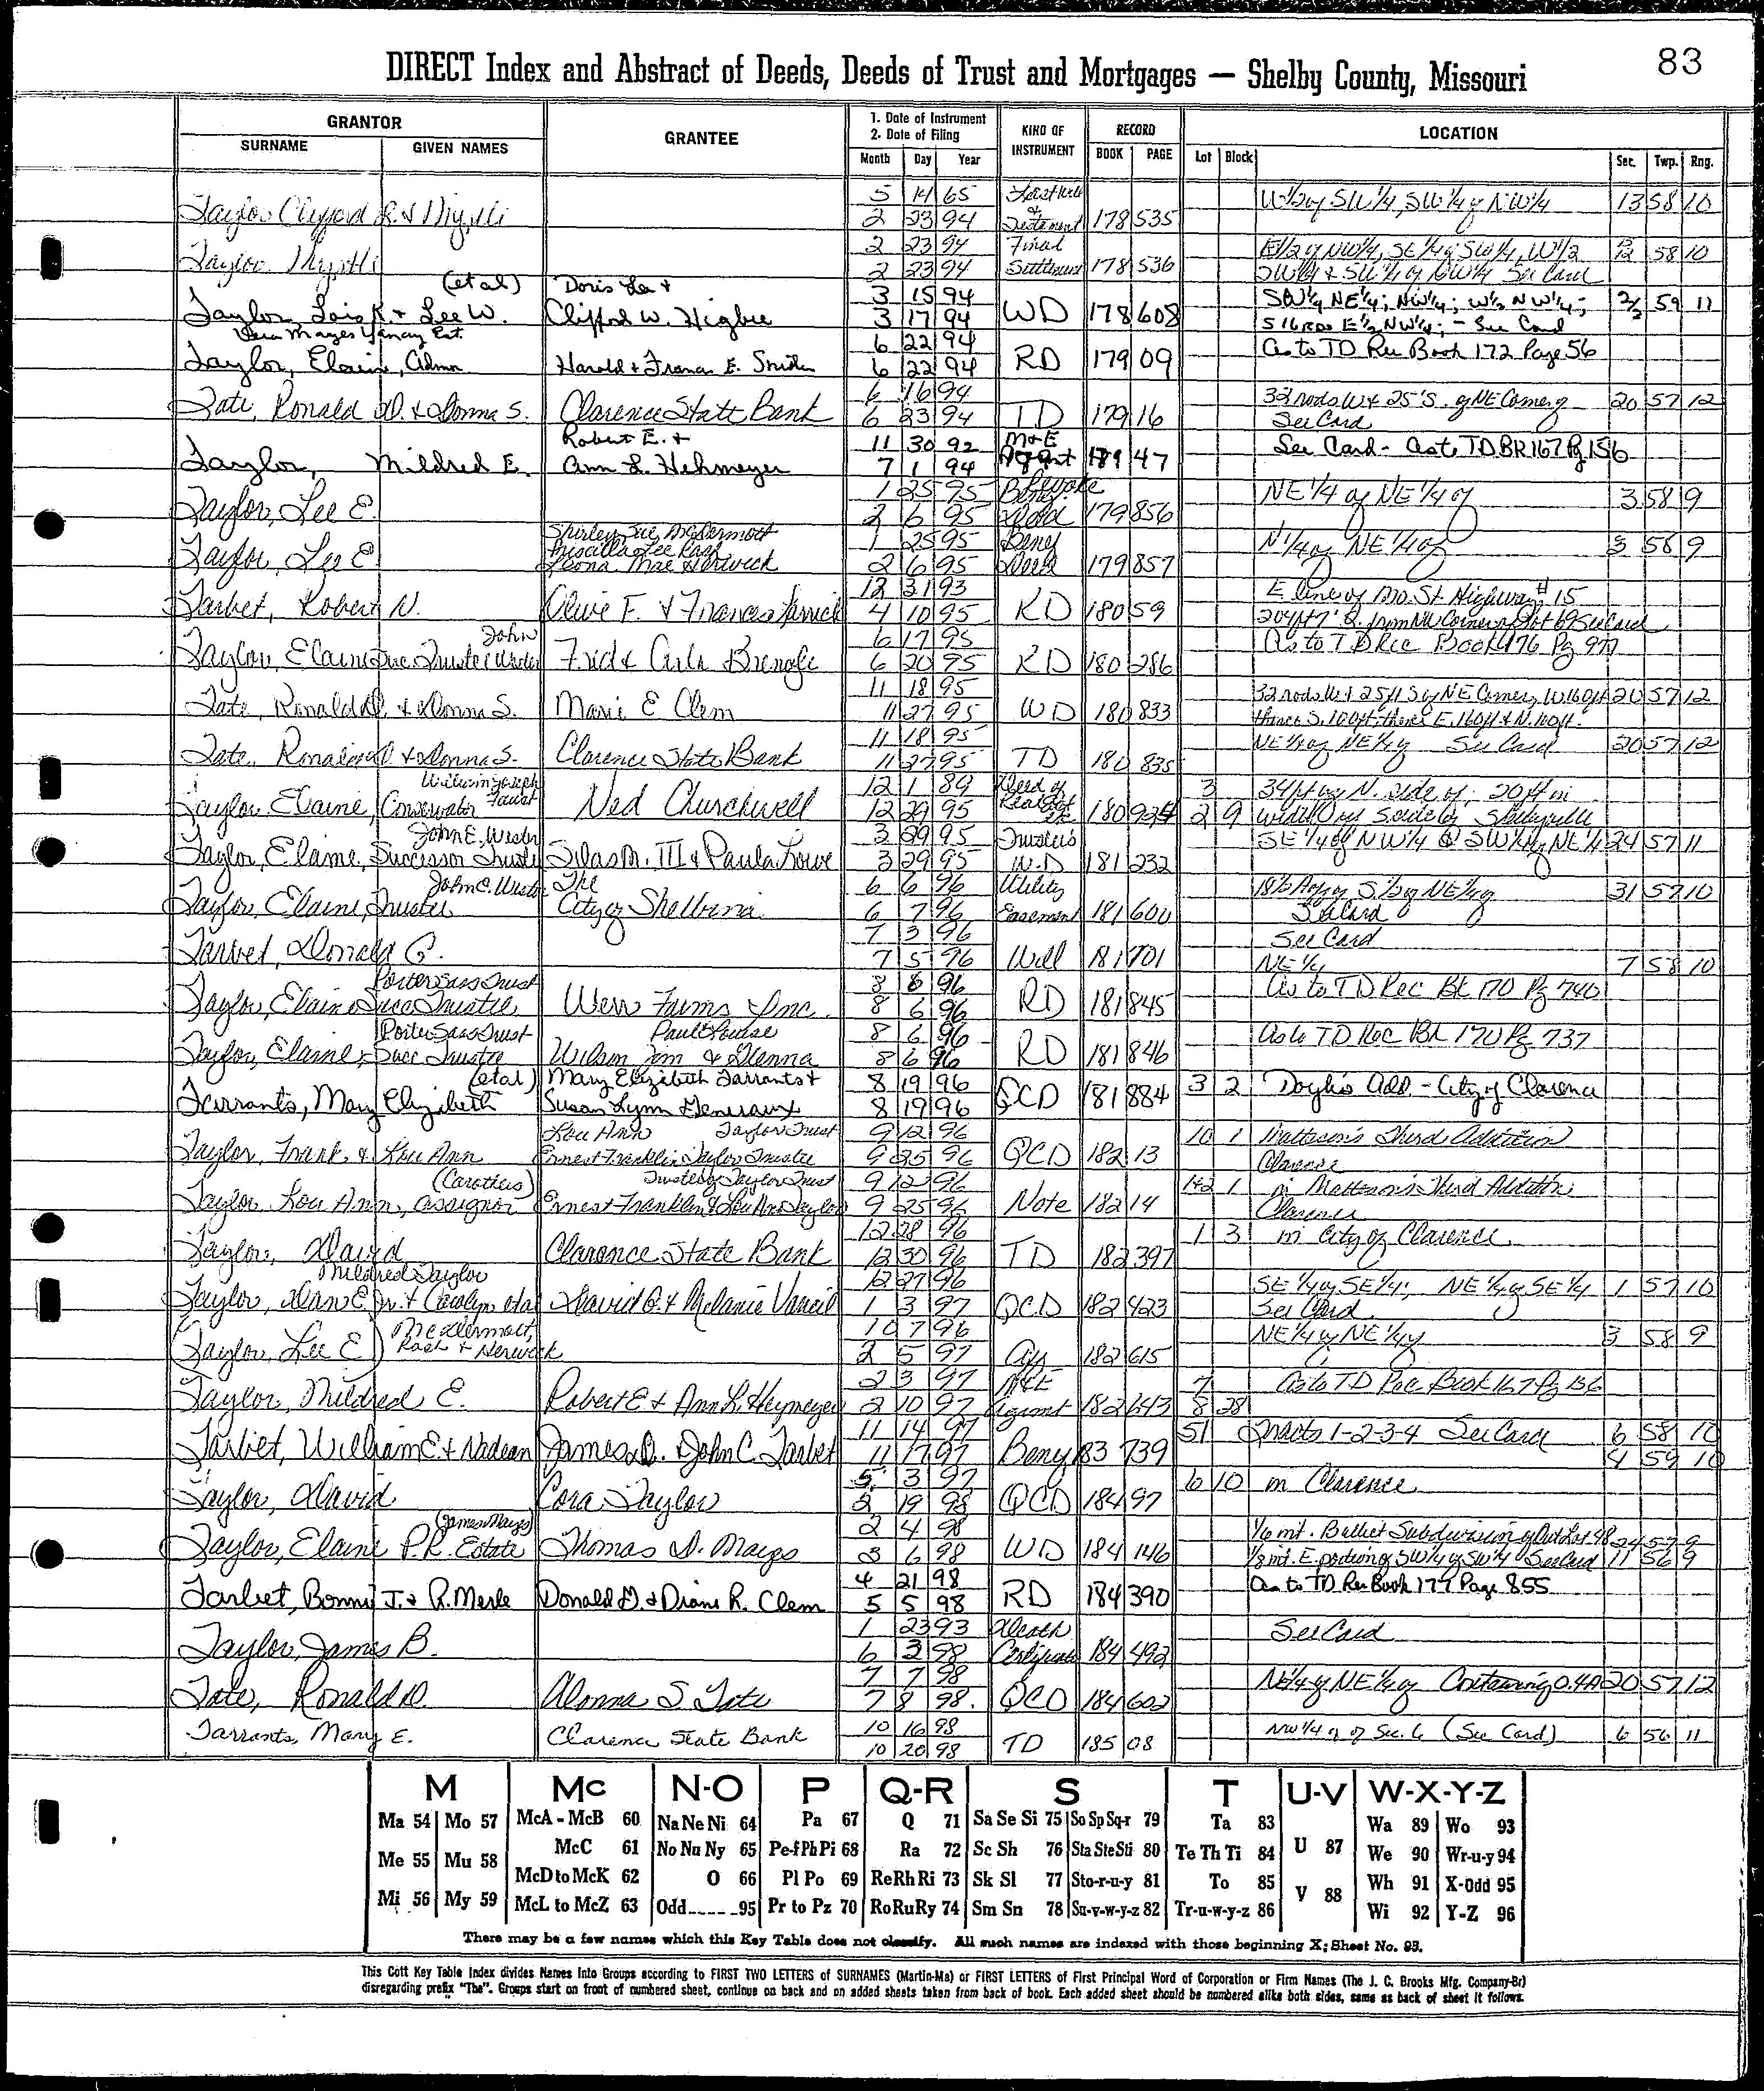 83
DIRECT Index and Abstract of Deeds, Deeds of Trust and Mortgages — Shelby County, Missouri
GRANTOR GRANTEE 1. Date of Instrument 2. Date of Filing KIND OF INSTRUMENT RECORD LOCATION
SURNAME GIVEN NAMES Month Day Year BOOK PAGE Lot Block Sec. Twp. Rng.
5 14 65 W 1/2 of SW 1/4, SW 1/4 of NW 1/4 13 58 10
Taylor Clifford R. & Myrtle 2 23 94 Testament 178 535
2 23 94 Final E 1/2 of NW 1/4, SE 1/4 of SW 1/4, W 1/2 12 58 10
Taylor Myrtle 2 23 94 Settlement 178 536 SW 1/4 & SW 1/4 of NW 1/4 See Card
(et al) Doris Lee & 3 15 94 SW 1/4 NE 1/4; NW 1/4; W 1/2 NW 1/4; 59 11
Taylor, Lois K. & Lee W. Clifford W. Higbee 3 17 94 WD 178 608 S 16 Rds E 1/2 NW 1/4; - See Card
6 22 94 As to TD Rec Book 172 Page 56
Taylor, Elaine, Adm. Harold & Frances E. 6 22 94 RD 179 09
6 16 94 32 rods W & 25'S. of NE Corner of 20 57 12
Tate, Ronald D. & Donna S. Clarence State Bank 6 23 94 TD 179 16 See Card
Robert E. & 11 30 92 M&E See Card - As to TD BK 167 Pg 156
Taylor, Mildred E. Ann L. Hehmeyer 7 1 94 Agmnt 189 47
1 25 95 Revoke NE 1/4 of NE 1/4 of 3 58 9
Taylor, Lee E. 2 6 95 Deed 179 856
Shirley Sue McDermott
Priscilla Lee Rash 1 25 95 Benef N 1/4 of NE 1/4 of 3 58 9
Taylor, Lee E Leona Mae Herwick 2 6 95 Deed 179 857
12 31 93 E line of Mo. St. Highway # 15
Tarbet, Robert N. Olive F. & Frances 4 10 95 RD 180 59
John 6 17 95 As to TD Rec Book 176 Pg 977
Taylor, Elaine Suc. Trustee Fred & Carla 6 20 95 RD 180 286
11 18 95 32 rods W & 25 ft S of NE Corner, W 160 ft 20 57 12
Tate, Ronald D. & Donna S. Marie E Clem 11 27 95 WD 180 833 thence S. 100 ft. thence E. 160 ft & N. 100 ft.
11 18 95 NE 1/4 of NE 1/4 of See Card 20 57 12
Tate, Ronald D. & Donna S. Clarence State Bank 11 27 95 TD 180 835
William Joseph 12 1 89 Deed of 3 34 ft by N. side of; 20 ft in
Taylor Elaine, Conservator Ned Churchwell 12 29 95 180 924 2 9 width Shelbyville
John E. Wester 3 29 95 Trustee's SE 1/4 of NW 1/4 & SW 1/4 of NE 1/4 24 57 11
Taylor, Elaine, Successor Trustee Silas M. III & Paula Lowe 3 29 95 W.D 181 232
John E. Wester The 6 6 96 Utility S 1/2 of NE 1/4 of 31 57 10
Taylor, Elaine, Trustee City of Shelbina 6 7 96 Easement 181 600 See Card
7 3 96 See Card
Tarbet, Donald G. 7 5 96 Will 181 701 NE 1/4 7 58 10
Porter Sass Trust 8 6 96 As to TD Rec Bk 170 Pg 740
Taylor, Elaine Succ Trustee Farms Inc. 8 6 96 RD 181 845
Porter Sass Trust Paul Louise 8 6 96 As to TD Rec Bk 170 Pg 737
Taylor, Elaine, Succ Trustee Wilson Jem & Glenna 8 6 96 RD 181 846
(et al) Mary Elizabeth Tarrants & 8 19 96 3 2 Doyle's Add. - City of Clarence
Tarrants, Mary Elizabeth Susan Lynn 8 19 96 QCD 181 884
Lou Ann Taylor Trust 9 12 96 10 1 Matteson's Third Addition
Taylor, Frank & Lou Ann Ernest Franklin Taylor Trustee 9 25 96 QCD 182 13 Clarence
(Carothers) Trustee of Taylor Trust 9 12 96 1+2 1 in Matteson's Third Addition
Taylor Lou Ann, Assignor Ernest Franklin & Lou Ann Taylor 9 25 96 Note 182 14 Clarence
12 28 96 1 3 in City of Clarence
Taylor, David Clarence State Bank 12 30 96 TD 182 397
Mildred Taylor 12 27 96 SE 1/4 of SE 1/4; NE 1/4 of SE 1/4 1 57 10
Taylor, Dan E Jr. & Carolyn etal David B. & Melanie Vancil 1 3 97 QCD 182 423 See Card
McDermott, 10 7 96 NE 1/4 of NE 1/4 of 3 58 9
Taylor, Lee E Rash & Herwick 2 5 97 Aff 182 615
2 3 97 M&E 7 As to TD Rec Book 167 Pg 156
Taylor, Mildred E. Robert E & Ann L. Heymeyer 2 10 97 Agrmt 182 643 8 28
11 14 97 51 Tracts 1-2-3-4 See Card 6 58 10
Tarbet, William E & Nadean James D. & John C. Tarbet 11 17 97 Beny 83 739 4 59 10
5 3 97 6 10 in Clarence
Taylor, David Cora Taylor 2 19 98 QCD 184 97
(James Mayes) 2 4 98 1/6 int. Subdivision of Out Lot 98 24 57 9
Taylor, Elaine P.R. Estate Thomas D. Mayes 3 6 98 WD 184 146 1/8 int. E. portion of SW 1/4 of SW 1/4 See Card 11 56 9
4 21 98 As to TD Rec Book 177 Page 855
Tarbet, Bonnie J. & R. Merle Donald D. & Diane R. Clem 5 5 98 RD 184 390
1 23 93 Death See Card
Taylor, James B. 6 3 98 Certificate 184 492
7 7 98 NE 1/4 of NE 1/4 of Containing 0.4A 20 57 12
Tate, Ronald D. Donna S. Tate 7 8 98. QCD 184 602
10 16 98 NW 1/4 of of Sec. 6 (See Card) 6 56 11
Tarrants, Mary E. Clarence State Bank 10 20 98 TD 185 08
M Mc N-O P Q-R S T U-V W-X-Y-Z
Ma 54 Mo 57 McA - McB 60 Na Ne Ni 64 Pa 67 Q 71 Sa Se Si 75 So Sp Sq-r 79 Ta 83 Wa 89 Wo 93
Me 55 Mu 58 McC 61 No Nu Ny 65 Pe-f Ph Pi 68 Ra 72 Sc Sh 76 Sta Ste Sti 80 Te Th Ti 84 U 87 We 90 Wr-u-y 94
McD to McK 62 O 66 Pl Po 69 Re Rh Ri 73 Sk Sl 77 Sto-r-u-y 81 To 85 Wh 91 X-Odd 95
Mi 56 My 59 McL to McZ 63 Odd 95 Pr to Pz 70 Ro Ru Ry 74 Sm Sn 78 Su-v-w-y-z 82 Tr-u-w-y-z 86 V 88 Wi 92 Y-Z 96
There may be a few names which this Key Table does not classify. All such names are indexed with those beginning X; Sheet No. 95.
This Cott Key Table Index divides Names into Groups according to FIRST TWO LETTERS of SURNAMES (Martin-Ma) or FIRST LETTERS of First Principal Word of Corporation or Firm Names (The J. C. Brooks Mfg. Company-Br)
disregarding prefix "The". Groups start on front of numbered sheet, continue on back and on added sheets taken from back of book. Each added sheet should be numbered alike both sides, same as back of sheet it follows.